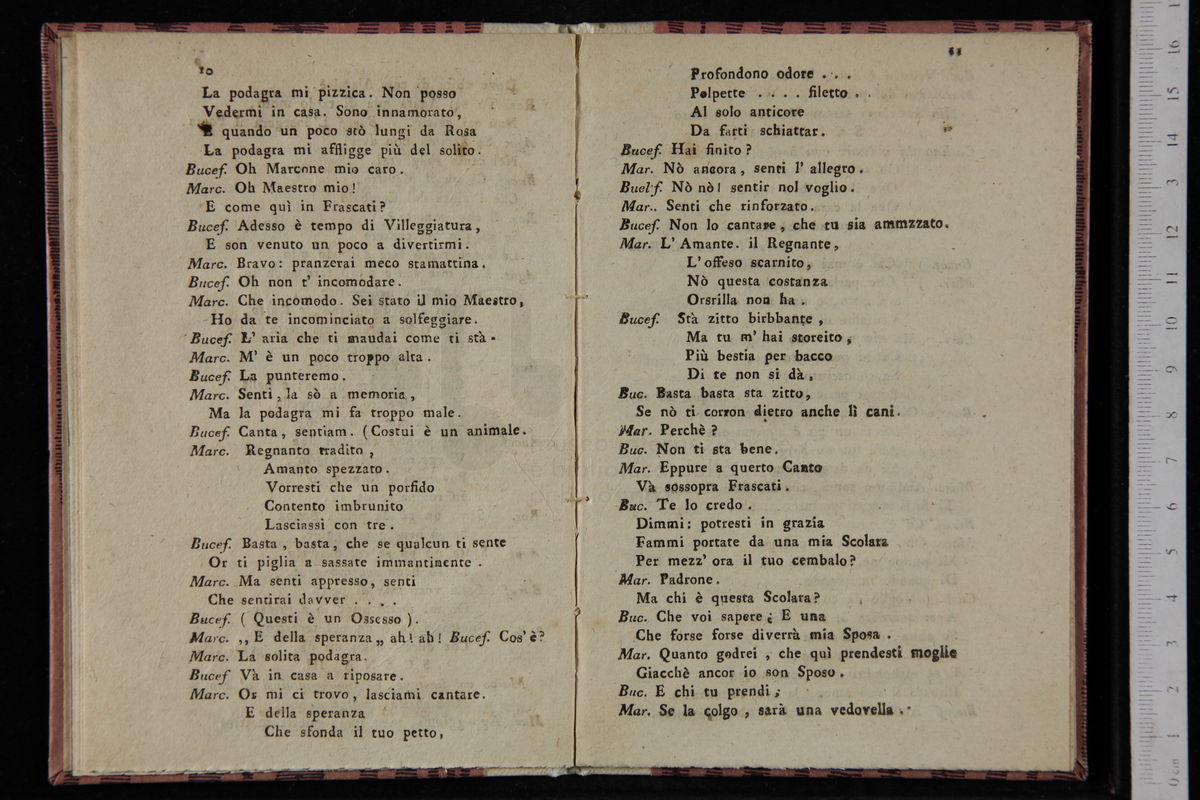 10
La podagra mi pizzica. Non posso
Vedermi in casa. Sono innamorato,
E quando un poco stò lungi da Rosa
La podagra mi affligge più del solito.
Bucef. Oh Marcone mio caro.
Marc. Oh Maestro mio!
E come quì in Frascati?
Bucef. Adesso è tempo di Villeggiatura,
E son venuto un poco a divertirmi.
Marc. Bravo: pranzerai meco stamattina.
Bucef. Oh non t' incomodare.
Marc. Che incomodo. Sei stato il mio Maestro,
Ho da te incominciato a solfeggiare.
Bucef. L' aria che ti maudai come ti stà-
Marc. M' è un poco troppo alta.
Bucef. La punteremo.
Marc. Senti, la sò a memoria,
Ma la podagra mi fa troppo male.
Bucef. Canta, sentiam. (Costui è un animale.
Marc. Regnanto tradito,
Amanto spezzato.
Vorresti che un porfido
Contento imbrunito
Lasciassi con tre.
Bucef. Basta, basta, che se qualcun ti sente
Or ti piglia a sassate immantinente.
Marc. Ma senti appresso, senti
Che sentirai davver . . . .
Bucef. ( Questi è un Ossesso ).
Marc. ,, E della speranza,, ah! ah! Bucef. Cos' è?
Marc. La solita podagra.
Bucef Và in casa a riposare.
Marc. Or mi ci trovo, lasciami cantare.
E della speranza
Che sfonda il tuo petto,
11
Profondono odore . . .
Polpette . . . . filetto . .
Al solo anticore
Da farti schiattar.
Bucef. Hai finito?
Mar. Nò ancora, senti l' allegro.
Buelf. Nò nò! sentir nol voglio.
Mar.. Senti che rinforzato.
Bucef. Non lo cantare, che tu sia ammzzato.
Mar. L' Amante. il Regnante,
L' offeso scarnito,
Nò questa costanza
Orsrilla non ha.
Bucef. Stà zitto birbbante,
Ma tu m' hai storeito,
Più bestia per bacco
Di te non si dà,
Buc. Basta basta sta zitto,
Se nò ti corron dietro anche lì cani.
Mar. Perchè?
Buc. Non ti sta bene.
Mar. Eppure a querto Canto
Và sossopra Frascati.
Buc. Te lo credo.
Dimmi: potresti in grazia
Fammi portate da una mia Scolara
Per mezz' ora il tuo cembalo?
Mar. Padrone.
Ma chi è questa Scolara?
Buc. Che voi sapere¿ E una
Che forse forse diverrà mia Sposa.
Mar. Quanto godrei, che quì prendesti moglie
Giacchè ancor io son Sposo.
Buc. E chi tu prendi;
Mar. Se la colgo, sarà una vedovella.
0 cm 1 2 3 4 5 6 7 8 9 10 11 12 13 14 15 16